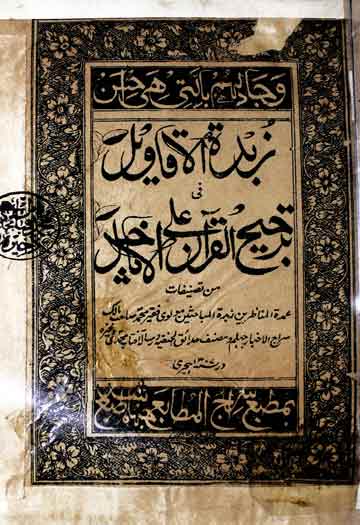 وجادلهم بالتی هی احسن
زبدة الاقاویل
فی
ترجیح القرآن علی الاناجیل
من تصنیفات
عمدة المناظرین زبدة المباحثین مولوی فقیر محمد صاحب مالک
سراج الاخبار جہلم و مصنف حدائق الحنفیہ و
در ہجری
مطبع سراج المطابع